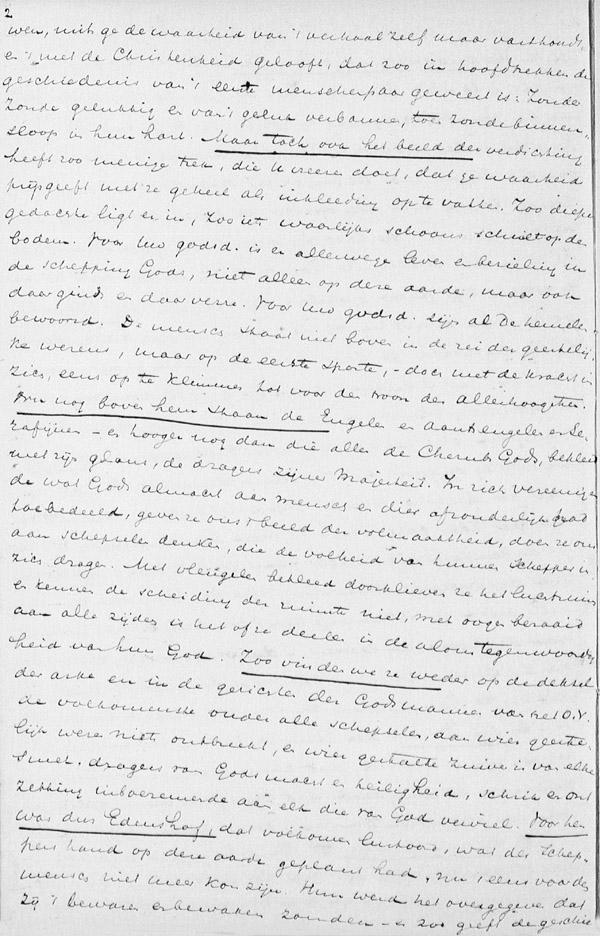 2
wen, mits ge de waarheid van 't verhaal zelf maar vasthoudt
en 't met de Christenheid gelooft, dat zoo in hoofdtrekken de
geschiedenis van 't eerste menschenpaar geweest is: Zonder
Zonde gelukkig en van 't geluk verbannen, toen zonde binnen„
sloop in hun hart. Maar toch, ook het beeld der verdichting
heeft zoo menige trek, die U vreezen doet, dat ge waarheid
prijsgeeft met ze geheel als inkleeding op te vatten. Zoo diepe
gedachte ligt er in, zoo iets waarlijks schoons schuilt op den
bodem. Voor Uw godsd. is er allerwege leven en bezieling in
de schepping Gods, niet alleen op deze aarde, maar ook
daarginds en daar verre. Voor Uw godsd. zijn al de hemelen
bewoond. De mensch staat niet boven in de rei der geestelij„
ke wezens, maar op de eerste sporte, - doch met de kracht in
zich, eens op te klimmen tot voor den troon des Allerhoogsten.
En nog boven hem staan de Engelen en Aartsengelen en Se„
rafijnen - en hooger nog dan die allen de Cherubs Gods, bekleed
met zijn glans, de dragers zijner Majesteit. In zich vereenigen„
de wat Gods almacht aan mensch en dier afzonderlijk had
toebedeeld, geven ze ons 't beeld der volmaaktheid, doen ze ons
aan schepselen denken, die de volheid van hunnen Schepper in
zich dragen. Met vleugelen bekleed doorklieven ze het luchtruim
en kennen de scheiding der ruimte niet, met oogen bezaaid
aan alle zijden is het of ze deelen in de alomtegenwoordig„
heid van hun God. Zoo vinden we ze weder op de deksel
der arke en in de gezichten der Godsmannen van het O.V.
de volkomenste onder alle schepselen, aan wier geeste„
lijk wezen niets ontbreekt, en wier gestalte zuiver is van elke
smet. dragers van Gods macht en heiligheid, schrik en ont„
zetting inboezemende aan elk die van God verviel. Voor hen
was dus Edens hof, dat volkomen lustoord, wat des Schep„
pers hand op deze aarde geplant had, nu 't eens voor den
mensch niet meer kon zijn. Hun werd het overgegeven dat
Zij 't bewaren en bewaken zouden - en zoo geeft de geschie